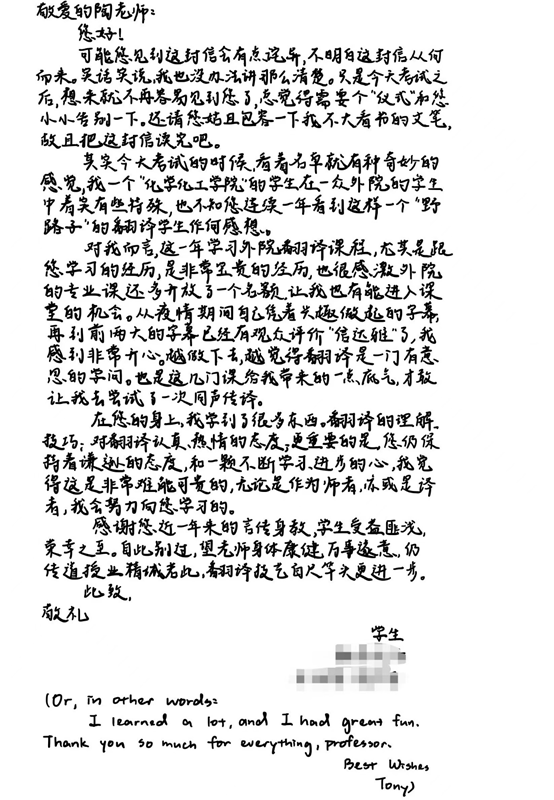 敬爱的陶老师：
您好！
可能您见到这封信会有点诧异，不明白这封信从何
而来。笑话笑说，我也没办法讲那么清楚。只是今天考试之
后，想来就不再容易见到您了，总觉得需要个“仪式”和您
小小告别一下。还请您姑且包容一下我不大看书的文笔，
故且把这封信读完吧。
其实今天考试的时候，看着名单就有种奇妙的
感觉，我一个“化学化工学院”的学生在一众外院的学生
中着实有些特殊，也不知您连续一年看到这样一个“野
路子”的翻译学生作何感想。
对我而言，这一年学习外院翻译课程，尤其是跟
您学习的经历，是非常宝贵的经历，也很感激外院
的专业课还多开放了一个名额，让我也有能进入课
堂的机会。从疫情期间自己凭着兴趣做起的字幕，
再到前两天的字幕已经有观众评价“信达雅”了，我
感到非常开心。越做下去，越觉得翻译是一门有意
思的学问。也是这几门课给我带来的一点底气，才敢
让我去尝试了一次同声传译。
在您的身上，我学到了很多东西。翻译的理解、
技巧；对翻译认真、热情的态度；更重要的是，您仍保
持着谦逊的态度，和一颗不断学习、进步的心，我觉
得这是非常难能可贵的，无论是作为师者，亦或是译
者，我会努力向您学习的。
感谢您近一年来的言传身教，学生受益匪浅，
荣幸之至。自此别过，望老师身体康健，万事遂意，仍
传道授业精诚若此，翻译技艺百尺竿头更进一步。
此致，
敬礼
学生
(Or, in other words:
I learned a lot, and I had great fun.
Thank you so much for everything, professor.
Best Wishes
Tony)